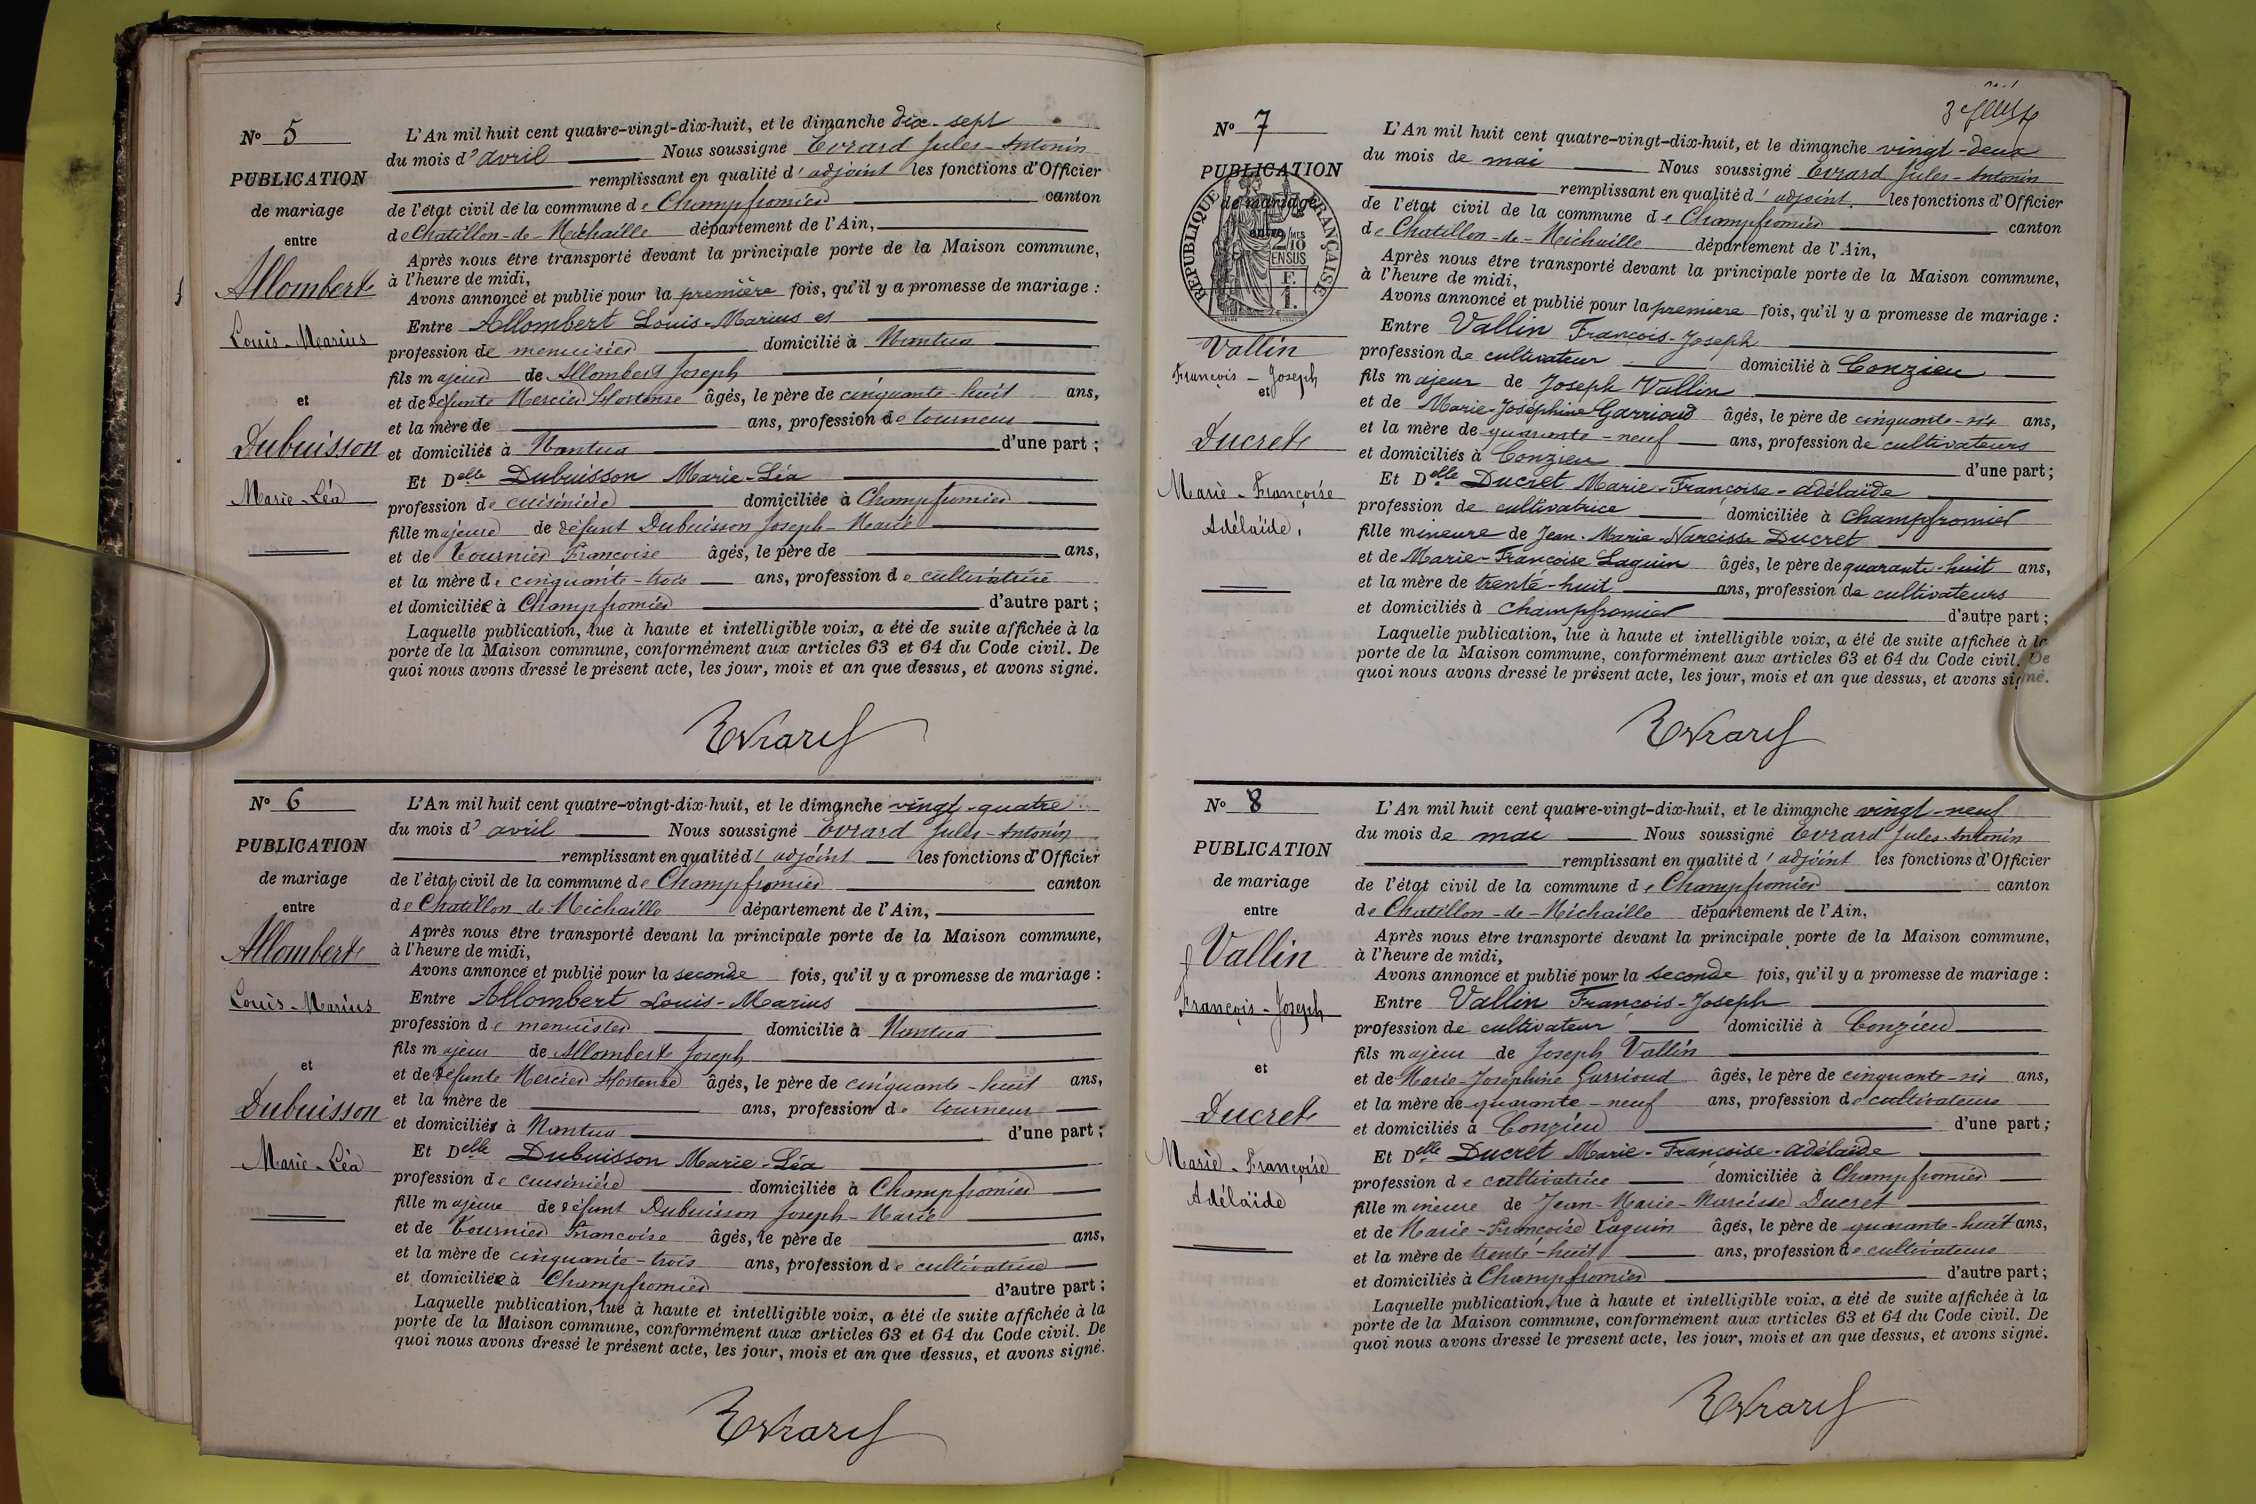 N° 5
PUBLICATION
de mariage
entre
Allombert
Louis-Marius
et
Dubuisson
Marie-Léa
L'An mil huit cent quatre-vingt-dix-huit, et le dimanche dix-sept
du mois d'avril Nous soussigné Évrard Jules-Antonin
remplissant en qualité d'adjoint les fonctions d'Officier
de l'état civil de la commune de Champfromier canton
de Chatillon-de-Michaille département de l'Ain,
Après nous être transporté devant la principale porte de la Maison commune,
à l'heure de midi,
Avons annoncé et publié pour la première fois, qu'il y a promesse de mariage :
Entre Allombert Louis-Marius
profession de menuisier domicilié à Nantua
fils majeur de Allombert Joseph
et de défunte Mercier Hortense âgés, le père de cinquante-huit ans,
et la mère de ans, profession de tourneur
et domiciliés à Nantua d'une part ;
Et Delle Dubuisson Marie-Léa
profession de cuisinière domiciliée à Champfromier
fille majeure de défunt Dubuisson Joseph-Marie
et de Tournier Françoise âgés, le père de ans,
et la mère de cinquante-trois ans, profession de cultivatrice
et domiciliée à Champfromier d'autre part ;
Laquelle publication, lue à haute et intelligible voix, a été de suite affichée à la
porte de la Maison commune, conformément aux articles 63 et 64 du Code civil. De
quoi nous avons dressé le présent acte, les jour, mois et an que dessus, et avons signé.
Evrard
N° 6
PUBLICATION
de mariage
entre
Allombert
Louis-Marius
et
Dubuisson
Marie-Léa
L'An mil huit cent quatre-vingt-dix-huit, et le dimanche vingt-quatre
du mois d'avril Nous soussigné Évrard Jules-Antonin
remplissant en qualité d'adjoint les fonctions d'Officier
de l'état civil de la commune de Champfromier canton
de Chatillon-de-Michaille département de l'Ain,
Après nous être transporté devant la principale porte de la Maison commune,
à l'heure de midi,
Avons annoncé et publié pour la seconde fois, qu'il y a promesse de mariage :
Entre Allombert Louis-Marius
profession de menuisier domicilié à Nantua
fils majeur de Allombert Joseph
et de défunte Mercier Hortense âgés, le père de cinquante-huit ans,
et la mère de ans, profession de tourneur
et domiciliés à Nantua d'une part ;
Et Delle Dubuisson Marie-Léa
profession de cuisinière domiciliée à Champfromier
fille majeure de défunt Dubuisson Joseph-Marie
et de Tournier Françoise âgés, le père de ans,
et la mère de cinquante-trois ans, profession de cultivatrice
et domiciliée à Champfromier d'autre part ;
Laquelle publication, lue à haute et intelligible voix, a été de suite affichée à la
porte de la Maison commune, conformément aux articles 63 et 64 du Code civil. De
quoi nous avons dressé le présent acte, les jour, mois et an que dessus, et avons signé.
Evrard
N° 7
PUBLICATION
de mariage
entre
RÉPUBLIQUE FRANÇAISE
2/10 MES
EN SUS
F.
1.
Vallin
François-Joseph
et
Ducret
Marie-Françoise
Adélaïde,
L'An mil huit cent quatre-vingt-dix-huit, et le dimanche vingt-deux
du mois de mai Nous soussigné Évrard Jules-Antonin
remplissant en qualité d'adjoint. les fonctions d'Officier
de l'état civil de la commune de Champfromier canton
de Chatillon-de-Michaille département de l'Ain,
Après nous être transporté devant la principale porte de la Maison commune,
à l'heure de midi,
Avons annoncé et publié pour la première fois, qu'il y a promesse de mariage :
Entre Vallin François-Joseph
profession de cultivateur domicilié à Conzieu
fils majeur de Joseph Vallin
et de Marie-Joséphine Garrioud âgés, le père de cinquante-six ans,
et la mère de quarante-neuf ans, profession de cultivateurs
et domiciliés à Conzieu d'une part ;
Et Delle Ducret Marie-Françoise-adélaïde
profession de cultivatrice domiciliée à Champfromier
fille mineure de Jean-Marie-Narcisse Ducret
et de Marie-Françoise Laguin âgés, le père de quarante-huit ans,
et la mère de trente-huit ans, profession de cultivateurs
et domiciliés à Champfromier d'autre part ;
Laquelle publication, lue à haute et intelligible voix, a été de suite affichée à la
porte de la Maison commune, conformément aux articles 63 et 64 du Code civil. De
quoi nous avons dressé le présent acte, les jour, mois et an que dessus, et avons signé.
Evrard
N° 8
PUBLICATION
de mariage
entre
Vallin
François-Joseph
et
Ducret
Marie-Françoise
Adélaïde
L'An mil huit cent quatre-vingt-dix-huit, et le dimanche vingt-neuf
du mois de mai Nous soussigné Évrard Jules-Antonin
remplissant en qualité d'adjoint les fonctions d'Officier
de l'état civil de la commune de Champfromier canton
de Chatillon-de-Michaille département de l'Ain,
Après nous être transporté devant la principale porte de la Maison commune,
à l'heure de midi,
Avons annoncé et publié pour la seconde fois, qu'il y a promesse de mariage :
Entre Vallin François-Joseph
profession de cultivateur domicilié à Conzieu
fils majeur de Joseph Vallin
et de Marie-Joséphine Garrioud âgés, le père de cinquante-six ans,
et la mère de quarante-neuf ans, profession de cultivateurs
et domiciliés à Conzieu d'une part ;
Et Delle Ducret Marie-Françoise-adélaïde
profession de cultivatrice domiciliée à Champfromier
fille mineure de Jean-Marie-Narcisse Ducret
et de Marie-Françoise Laguin âgés, le père de quarante-huit ans,
et la mère de trente-huit ans, profession de cultivateurs
et domiciliés à Champfromier d'autre part ;
Laquelle publication, lue à haute et intelligible voix, a été de suite affichée à la
porte de la Maison commune, conformément aux articles 63 et 64 du Code civil. De
quoi nous avons dressé le présent acte, les jour, mois et an que dessus, et avons signé.
Evrard